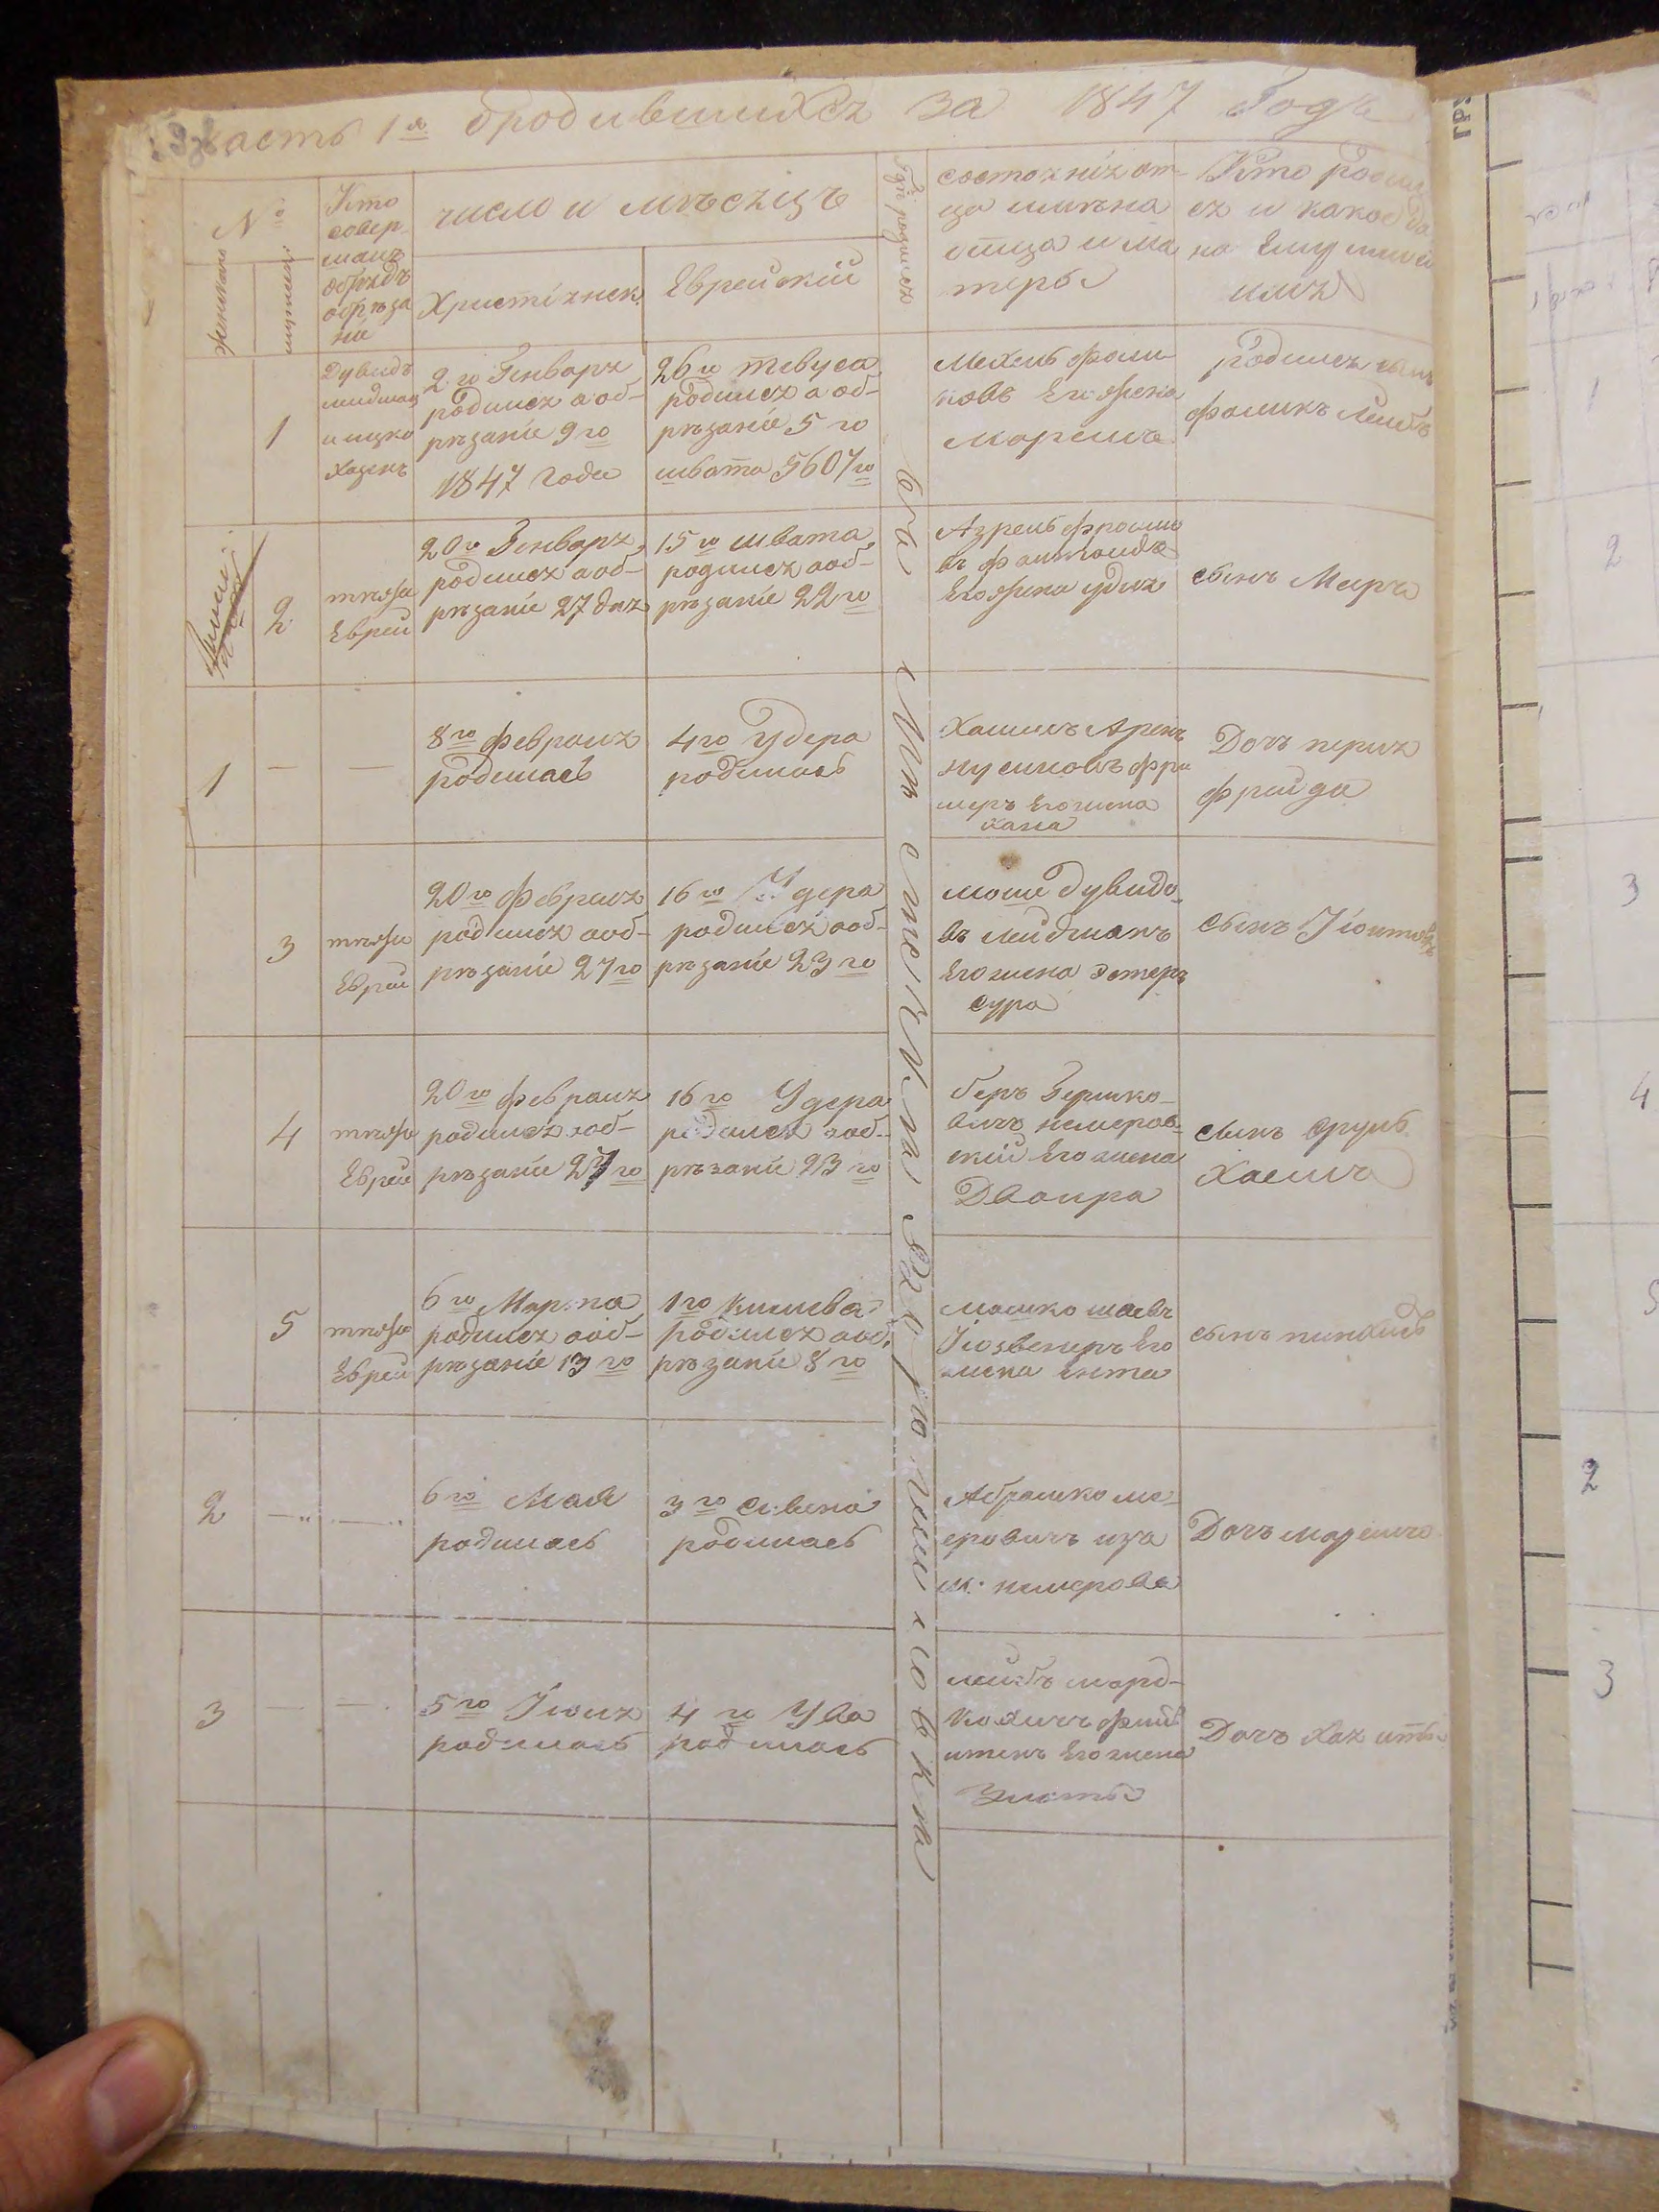 Часть 1я о родившихся за 1847 Годъ
№
женскаго
мужескаго
Кто
совер
шалъ
обрядъ
обреза
нiя
число и мѣсяцъ
Христiянск.
Еврейскiй
Где родился
состоянiя от-
ца имѣна
отца и ма
теры
Кто родил
ся и какое да
но Ему имѣ
илиъ
1
Дувидъ
лидман
и ицко
Хазенъ
2го Генваря
родился а об-
рѣзанiе 9го
1847 Года
26го тевуса
родился а об-
рѣзанiе 5го
швата 5607го
Мехель фали
ковъ Его жена
Маремъ
Родился сынъ
фаликъ Лейбъ
2
тѣжа
Евреи
20го Генваря
родился а об-
рѣзанiе 27 дня
15го швата
родился а об-
рѣзанiе 22го
Азрель фроимо
въ
Его жена удля
сынъ Меиръ
1
8го февраля
родилась
4го Удера
родилась
Хаимъ Аренъ
Его жена
хана
Дочь перля
фрайда
3
тѣжа
Евреи
20го февраля
родился а об-
рѣзанiе 27го
16го Удера
родился а об-
рѣзанiе 23го
моше Дувидо-
въ лейдманъ
Его жена Эстеръ
сура
сынъ Iонтовъ
4
тѣжа
Евреи
20го февраля
родился а об-
рѣзанiе 27го
16го Удера
родился а об-
рѣзанiе 23го
беръ Гершко-
вичъ немеров-
скiй Его жена
Двойра
сынъ сруль
Хаимъ
5
тѣжа
Евреи
6го Марта
родился а об-
рѣзанiе 13го
1го
родился а об-
рѣзанiе 8го
мошко
Его
жена Ента
сынъ пинхась
2
6го Мая
родилась
3го сивена
родилась
Абрамко ме-
еровичъ изъ
м. немерова
Дочъ маремъ
3
5го Iюня
родилась
4го Ува
родилась
лейбъ морд-
Его жена
Злиста
Дочъ Хая